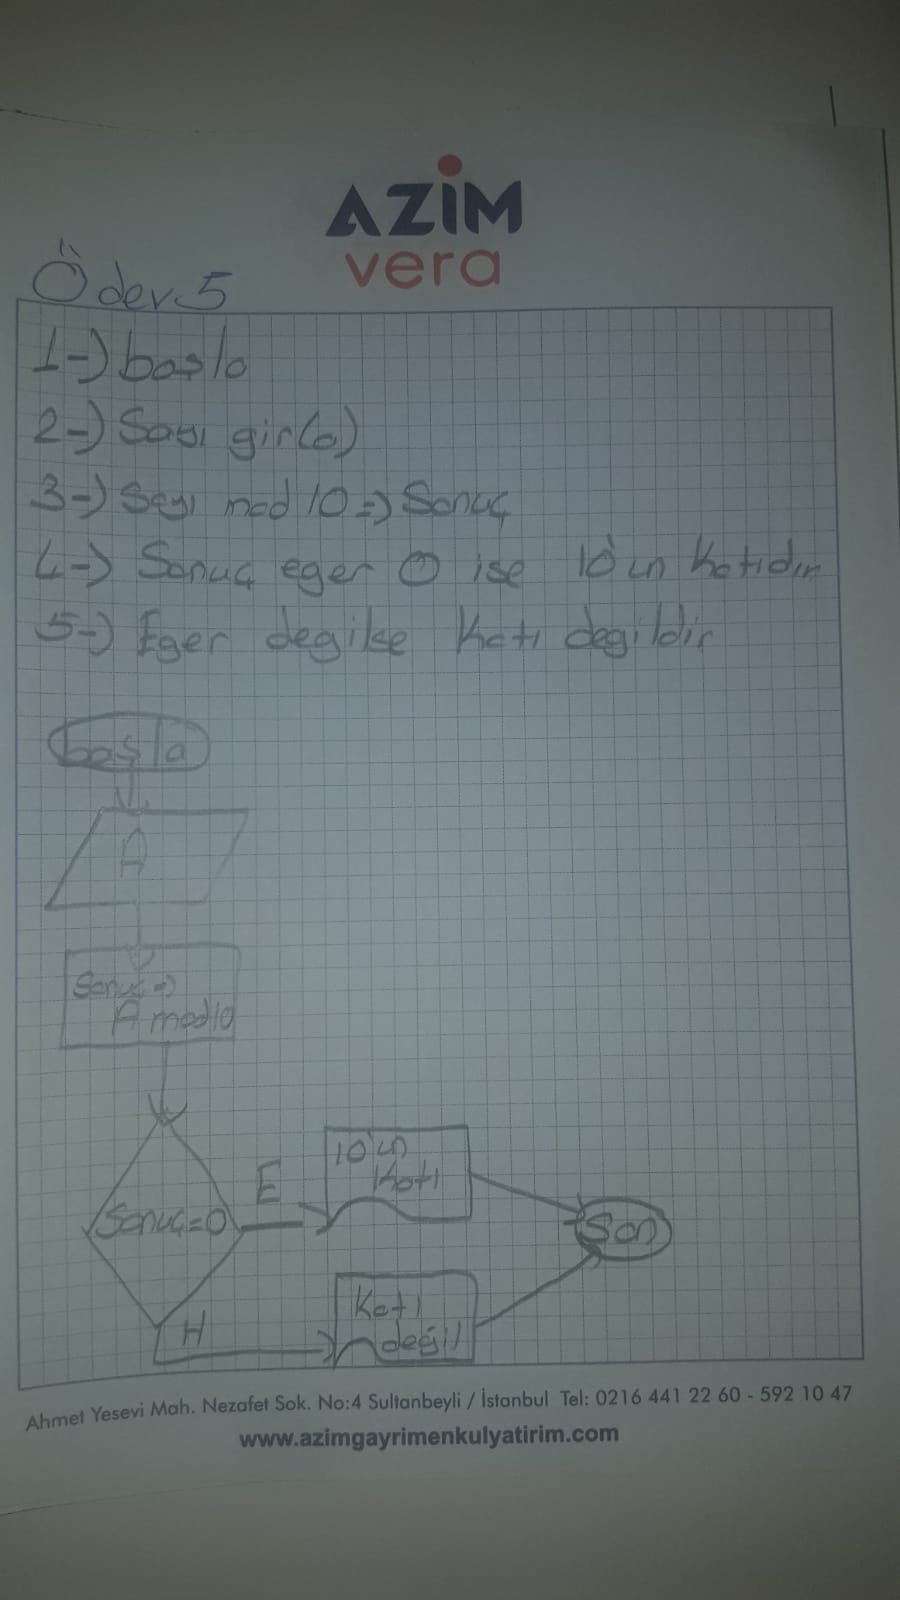 AZİM
vera
Ödev 5
1-) başla
2-) Sayı gir(a)
3-) Sayı mod 10 => Sonuç
4-) Sonuç eger 0 ise 10'un Katıdır
5-) Eger degilse Katı degildir
başla
A
Sonuç =>
A mod10
Sonuç=0
E
10'un
Katı
Son
H
Katı
değil
Ahmet Yesevi Mah. Nezafet Sok. No:4 Sultanbeyli / İstanbul Tel: 0216 441 22 60 - 592 10 47
www.azimgayrimenkulyatirim.com